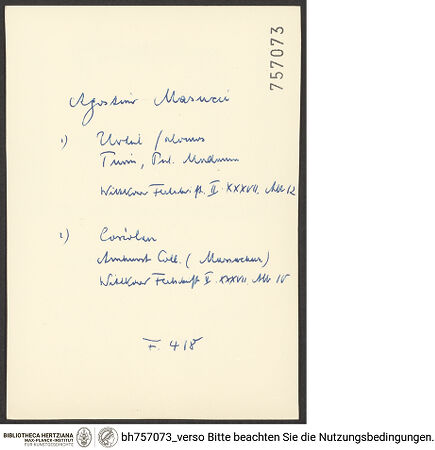 757073
Agostino Masucci
1) Urteil Salomos
Turin, Pal. Madama
Wittkower Festschrift II XXXVII, Abb 12
2) Coriolan
Amherst Coll. (Massachus)
Wittkower Festschrift II XXXVII Abb
F. 418
BIBLIOTHECA HERTZIANA
MAX-PLANCK-INSTITUT
FÜR KUNSTGESCHICHTE
bh757073_verso Bitte beachten Sie die Nutzungsbedingungen.